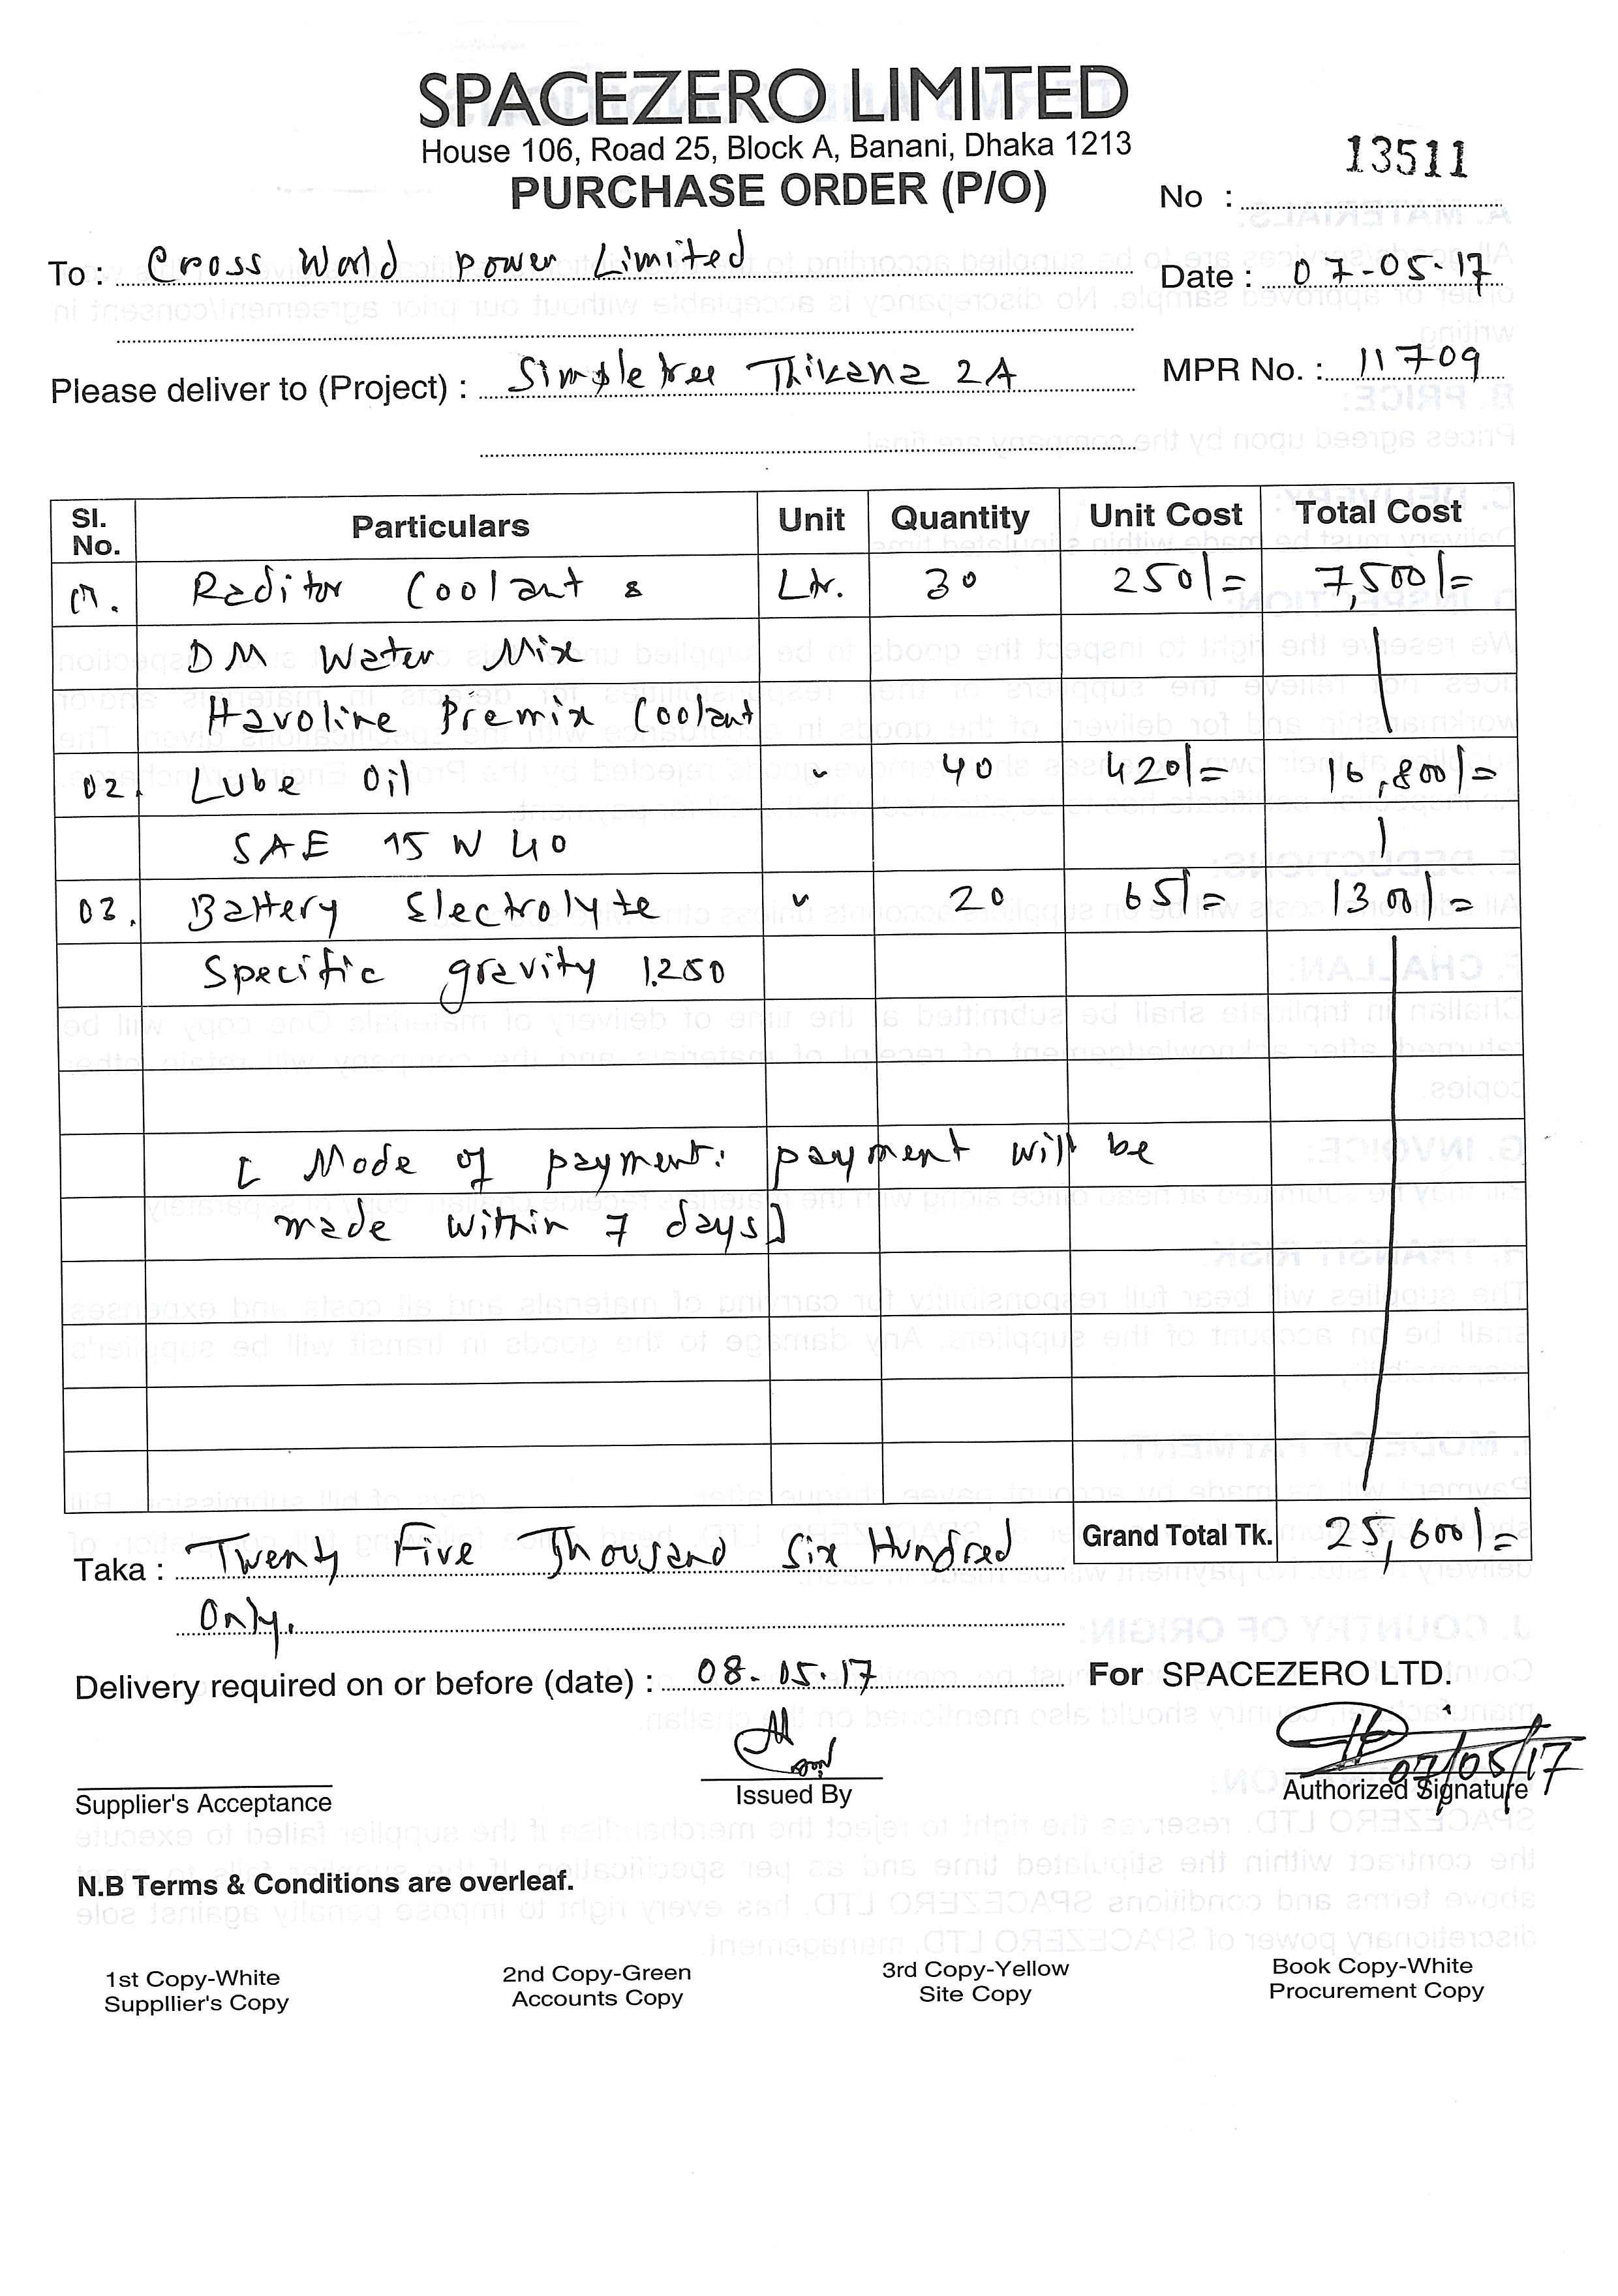 SPACEZERO LIMITED
House 106, Road 25, Block A, Banani, Dhaka 1213
PURCHASE ORDER (P/O)
No : 13511
To : Cross World Power Limited
Date : 07-05-17
Please deliver to (Project) : Simpletree Thikana 2A
MPR No. : 11709
Sl. No. Particulars Unit Quantity Unit Cost Total Cost
01. Raditor Coolant & Ltr. 30 250/= 7,500/=
DM Water Mix
Havoline Premix Coolant
02. Lube Oil " 40 420/= 16,800/=
SAE 15 W 40
03. Battery Electrolyte " 20 65/= 1300/=
Specific gravity 1.250
[ Mode of payment: payment will be
made within 7 days]
Grand Total Tk. 25,600/=
Taka : Twenty Five Thousand Six Hundred
Only.
Delivery required on or before (date) : 08-05-17
For SPACEZERO LTD.
07/05/17
Supplier's Acceptance Issued By Authorized Signature
N.B Terms & Conditions are overleaf.
1st Copy-White 2nd Copy-Green 3rd Copy-Yellow Book Copy-White
Suppllier's Copy Accounts Copy Site Copy Procurement Copy